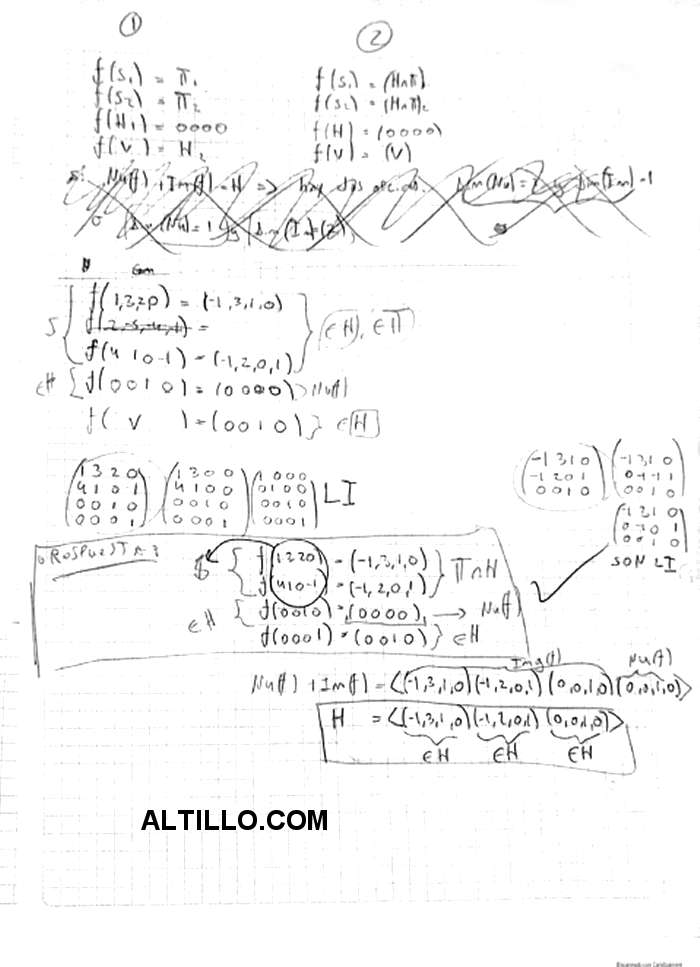 ① ②
f(S₁) = π₁
f(S₂) = π₂
f(H₁) = 0000
f(V) = H₂
f(S₁) = (H∩π)₁
f(S₂) = (H∩π)₂
f(H) = (0000)
f(V) = (V)
Nu(f) + Im(f) = H => hay dos
Dim(Nu) = 2 y Dim(Im) = 1
o Dim(Nu) = 1 y Dim(Im) = (2)
S { f(1,3,2,0) = (-1,3,1,0)
f(4 1 0 -1) = (-1,2,0,1) } ∈H, ∈π
∈H { f(0 0 1 0) = (0000) > Nu(f)
f( V ) = (0 0 1 0) } ∈ H
1 3 2 0
4 1 0 1
0 0 1 0
0 0 0 1
1 3 0 0
4 1 0 0
0 0 1 0
0 0 0 1
1 0 0 0
0 1 0 0
0 0 1 0
0 0 0 1
LI
-1 3 1 0
-1 2 0 1
0 0 1 0
-1 3 1 0
0 -1 -1 1
0 0 1 0
-1 3 1 0
0 0 1 0
SON LI
RESPUESTA
f(1320) = (-1,3,1,0)
f(410-1) = (-1,2,0,1) } π∩H
∈H { f(0010) = (0000), → Nu(f)
f(0001) = (0010) } ∈H
Img(f) Nu(f)
Nu(f) + Im(f) = <(-1,3,1,0)(-1,2,0,1)(0,0,1,0)(0,0,1,0)>
H = <(-1,3,1,0)(-1,2,0,1)(0,0,1,0)>
∈H ∈H ∈H
ALTILLO.COM